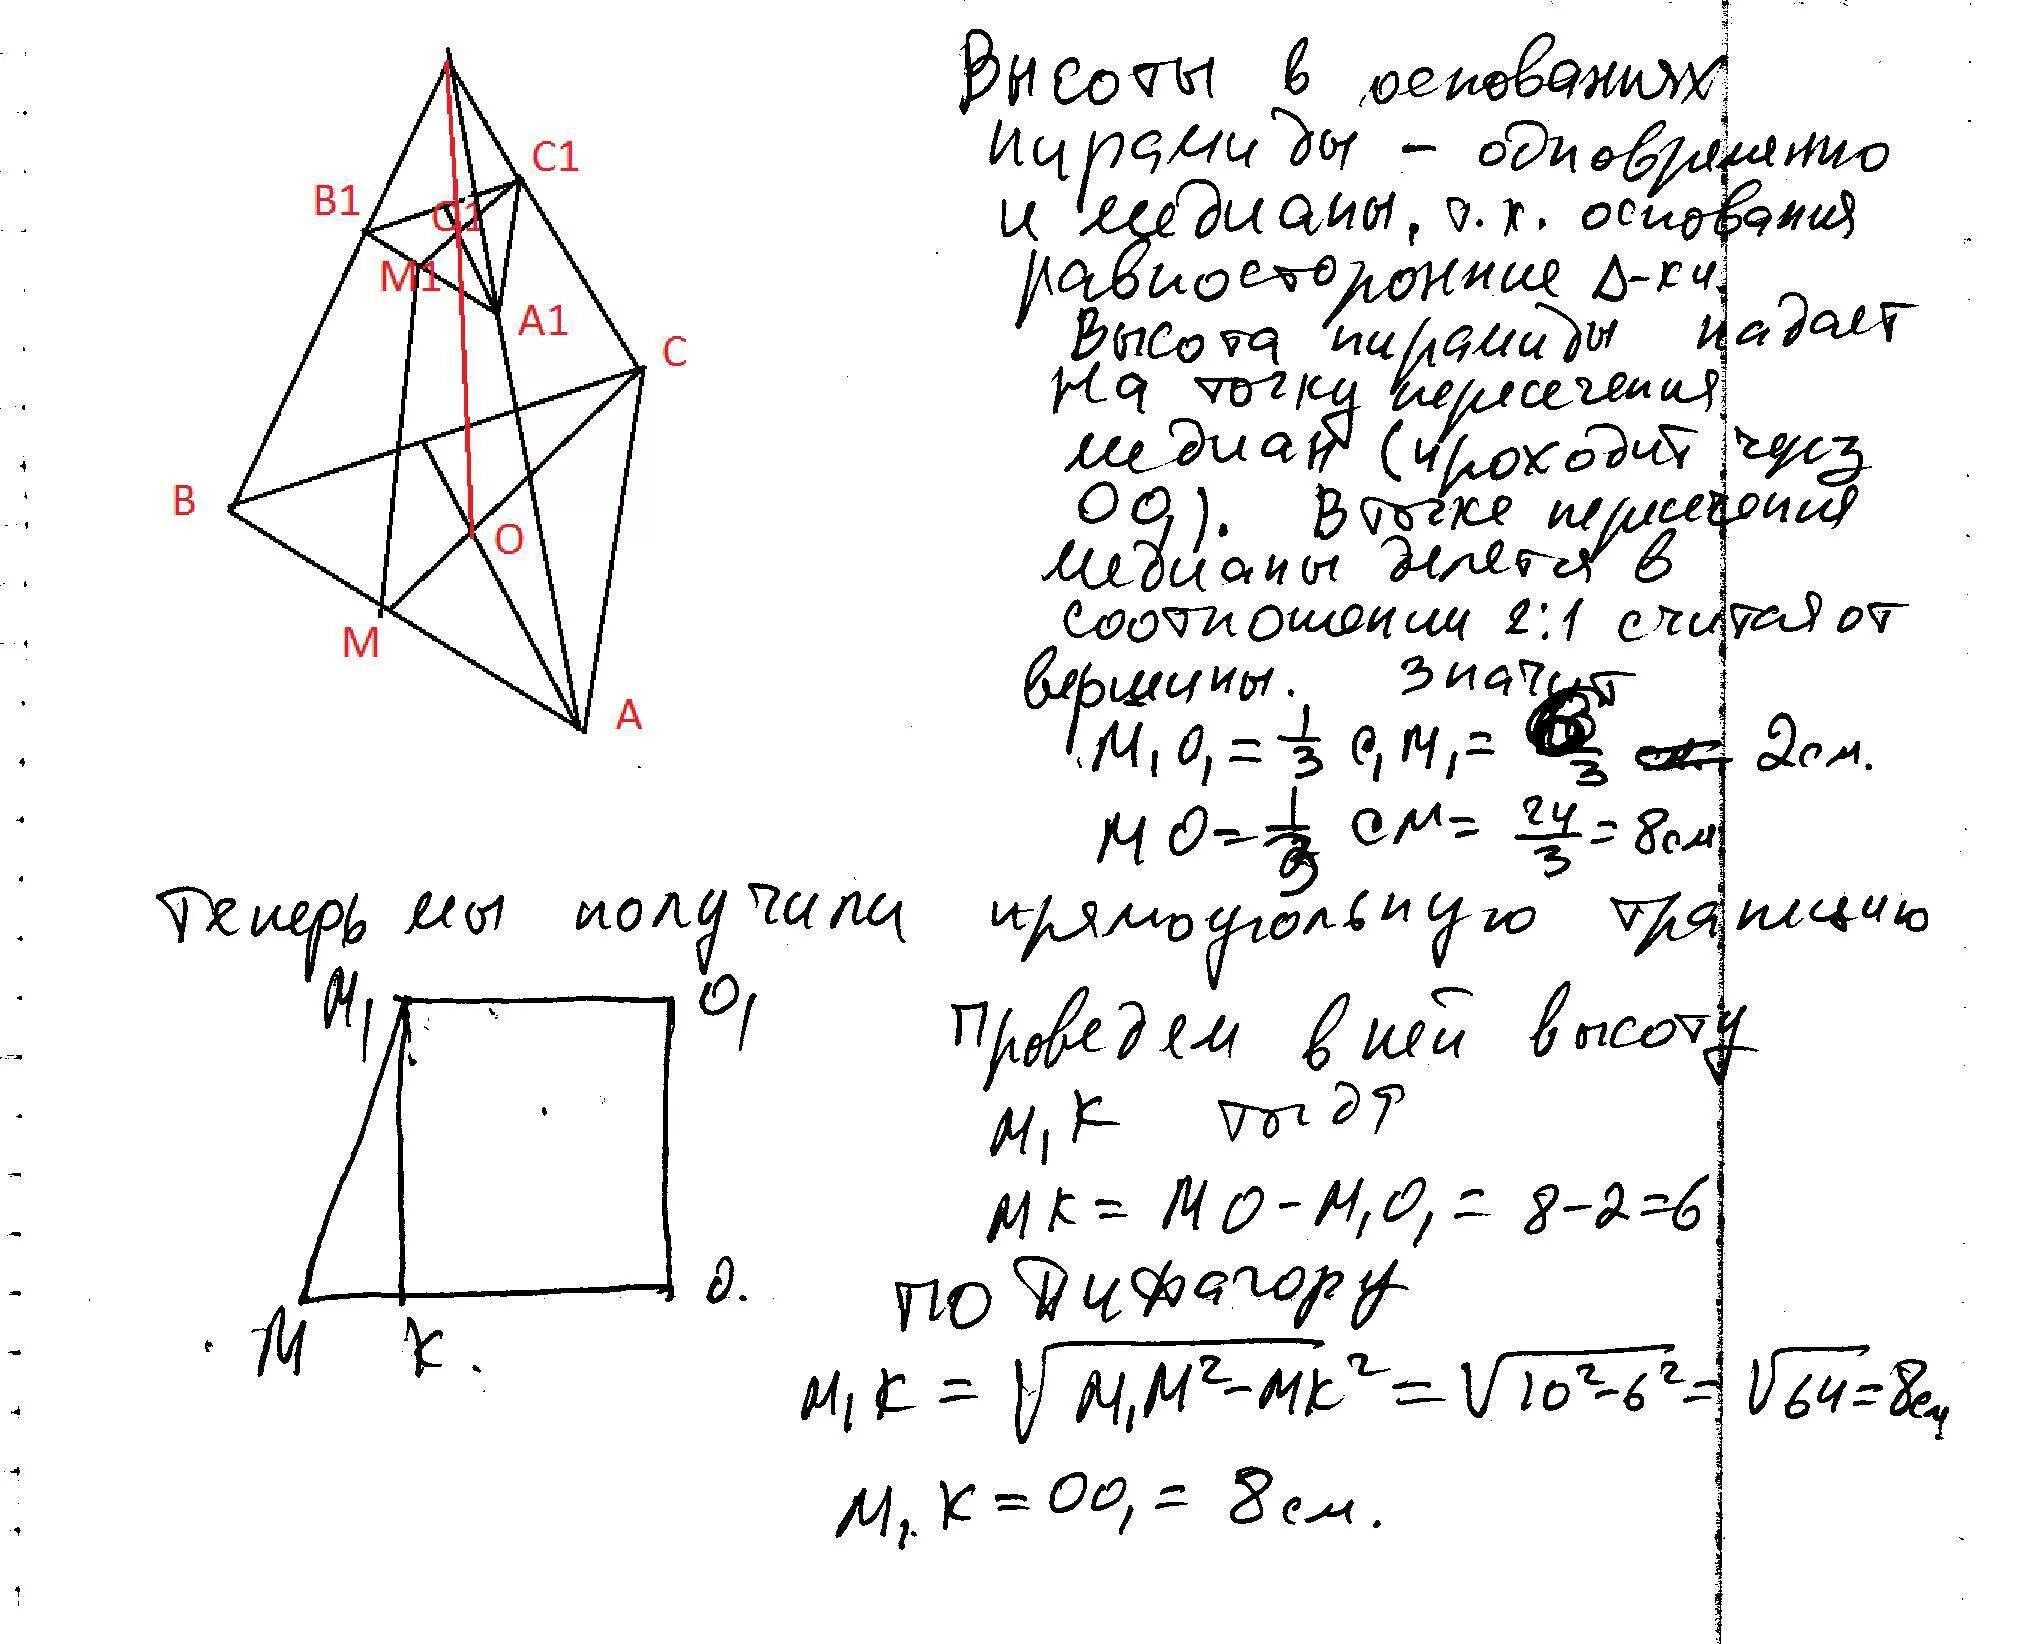 C1
B1
O1
M1
A1
C
B
O
M
A
Высоты в основаниях
пирамиды - одновременно
и медианы, т.к. основания
равносторонние Δ-ки.
Высота пирамиды падает
на точку пересечения
медиан (проходит через
OO₁). В точке пересечения
медианы делятся в
соотношении 2:1 считая от
вершины. Значит
M₁O₁ = 1/3 C₁M₁ = 6/3 = 2см.
MO = 1/3 CM = 24/3 = 8см
Теперь мы получили прямоугольную трапецию
M₁ O₁
Проведем в ней высоту
M₁K тогда
MK = MO - M₁O₁ = 8-2=6
M K. O.
по Пифагору
M₁K = √M₁M²-MK² = √10²-6² = √64 = 8см
M₁K = OO₁ = 8см.